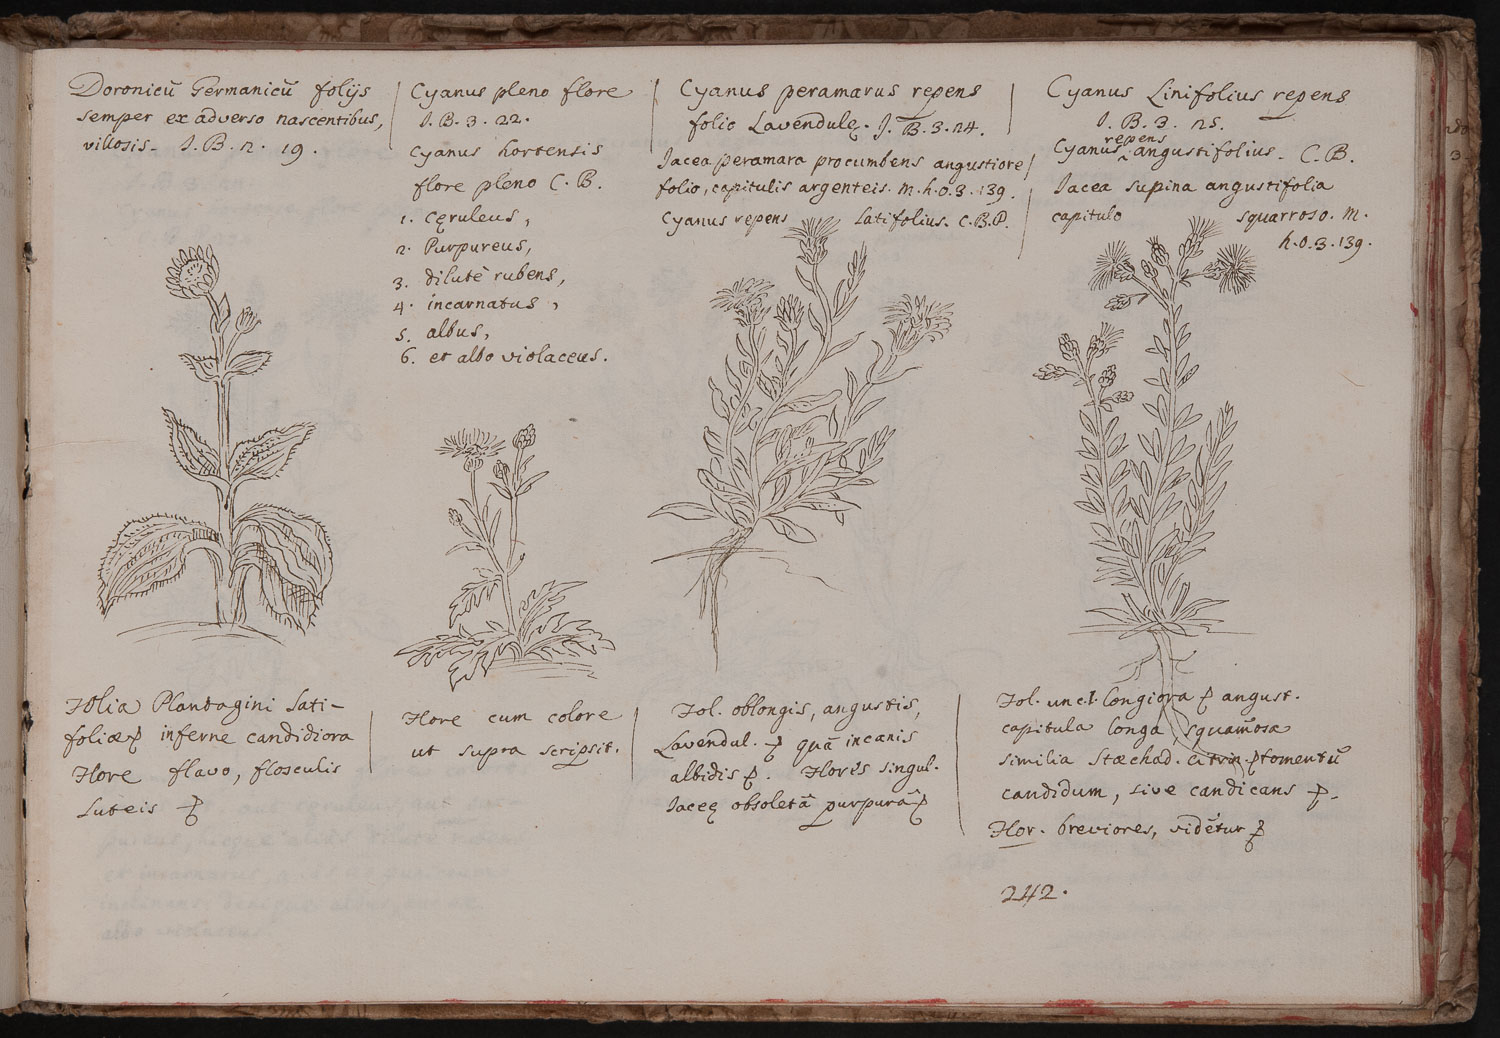 Doronicū Germanicū folijs
semper ex adverso nascentibus,
villosis. I. B. 2. 19.
Cyanus pleno flore
I. B. 3. 22.
Cyanus hortensis
flore pleno C. B.
1. cęruleus,
2. Purpureus,
3. dilutè rubens,
4. incarnatus,
5. albus,
6. et albo violaceus.
Cyanus peramarus repens
folio Lavendulę. I. B. 3. 24.
Iacea peramara procumbens angustiore
folio, capitulis argenteis. m. h. o. 3. 139.
Cyanus repens latifolius. C. B. P.
Cyanus Linifolius repens
I. B. 3. 25.
repens
Cyanus ‸ angustifolius. C. B.
Iacea supina angustifolia
capitulo squarroso. m.
h. o. 3. 139.
Folia Plantagini lati-
foliæ inferne candidiora
Flore flavo, flosculis
Luteis
Flore cum colore
ut supra scripsit.
Fol. oblongis, angustis,
Lavendul. quā incanis
albidis. Florēs singul.
Iaceę obsoletā purpurā
Fol. uncl. longiora angust.
capitula longa, squam̄osa
similia Stæchad. citrin. tomentū
candidum, sive candicans
Flor. breviores, vidētur
242.